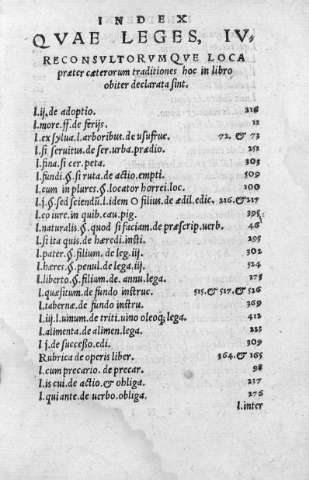 INDEX
QVAE LEGES, IV,
RECONSVLTORVMQVE LOCA
præter cæterorum traditiones hoc in libro
obiter declarata sint.
l.ij.de adoptio. 218
l.more.ff.de ferijs. 11
l.ex sylua.l.arboribus.de vsufruc. 72. & 73
l.si seruitus de ser.vrba.prædio. 251
l.fina.si cer.peta. 303
l.fundi.§.si ruta.de actio.empti. 509
l.cum in plures.§.locator horrei.loc. 100
l.j.§.sed sciendũ.l.idem O filius.de ædil.edic. 216.& 217
l.eo iure.in quib.cau.pig. 395
l.naturalis.§.quod si faciam.de præscrip.verb. 46
l.si ita quis.de hæredi.insti. 295
l.pater.§.filium.de leg.iij. 302
l.hæres.§.penul.de lega.iij. 524
l.liberto.§.filium.de annu.lega. 275
l.quæsitum.de fundo instruc. 515.& 517.& 526
l.tabernæ.de fundo instru. 369
l.iij.l.uinum.de triti.uino oleoq; lega. 412
l.alimenta.de alimen.lega. 225
l j.de successo.edi. 309
Rubrica de operis liber. 364.& 365
l.cum precario.de precar. 98
l.is cui.de actio.& obliga. 237
l.qui ante.de uerbo.obliga. 276
l.inter